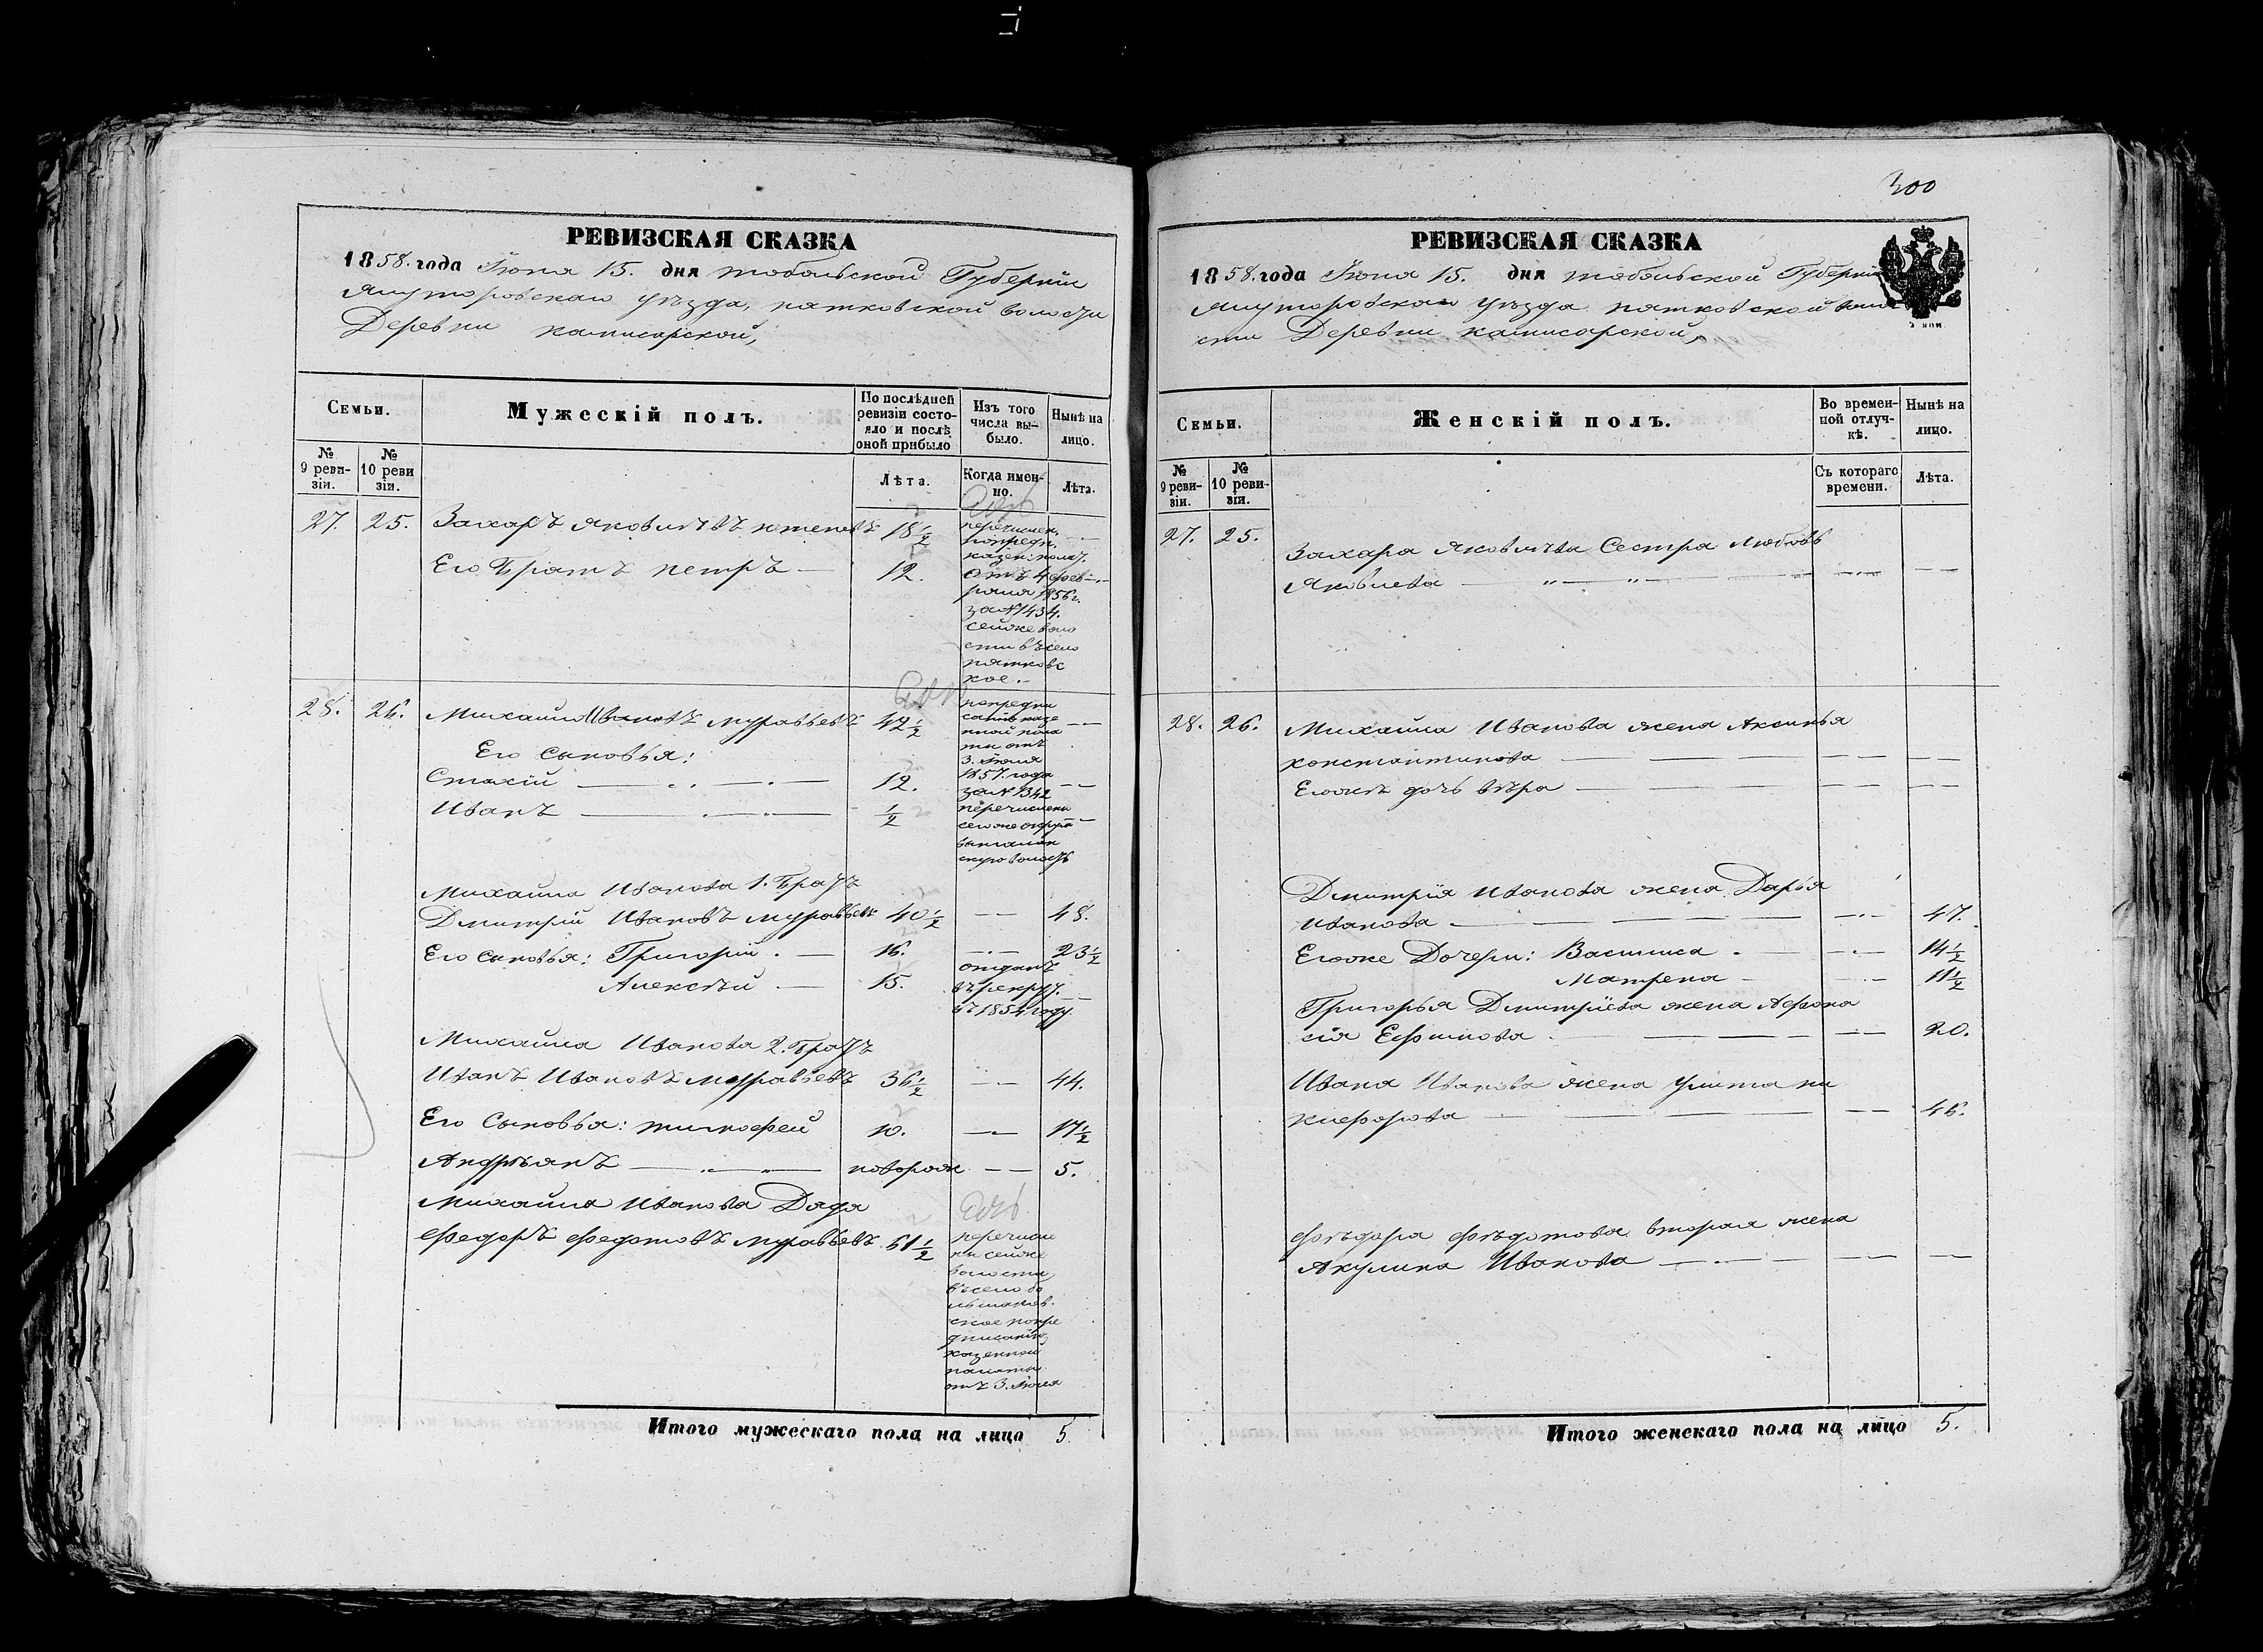 300
РЕВИЗСКАЯ СКАЗКА
1858. года Іюня 15. дня тобольской Губерніи
Ялуторовскаго уѣзда, пятковской волости
Деревни камисарской,
Семьи.
Мужескій полъ.
По послѣдней ревизіи состояло и послѣ оной прибыло
Изъ того числа выбыло.
Нынѣ на лицо.
№ 9 ревизіи.
№ 10 ревизіи.
Лѣта.
Когда именно.
Лѣта.
27. 25. Захаръ яковлѣвъ 18½
перечислен.
попредп.
казен: полат.
Его Братъ петръ — 12.
отъ 4 февраля 1856 г.
за № 1434.
сейже воло
сти въ село
пятковс
кое.
28. 26. Михайло Ивановъ муравьевъ 42½ — —
попредпи
санію казе
нной пола
ты отъ
3. Іюля
1857. года
за № 1342
перечислены
сегоже округа
волость
Его сыновья:
Стахій — 12. — —
Иванъ — ½ —
Михайла Иванова 1. Братъ
Дмитрій Ивановъ муравьевъ 40½ — — 48.
Его сыновья: Григорій. — 16. — 23½
Алексѣй — 15.
отданъ
въ рекрут.
въ 1854 году.
Михайла Иванова 2. Братъ
Иванъ Ивановъ муравьевъ 36½ — — 44.
Его Сыновья: тимофей 10. — 17½
Андрѣянъ — новорож — — 5.
Михайла Иванова Дядя
Федоръ Федотовъ муравьевъ 51½
перечисле
нъ сейже
волости
въ село
ское попре
дписанію
казенной
палаты
отъ 3. Іюля
Итого мужескаго пола на лицо 5.
РЕВИЗСКАЯ СКАЗКА
1858. года Іюня 15. дня тобольской Губерніи
Ялуторовскаго уѣзда пятковской воло
сти Деревни камисарской,
Семьи.
Женскій полъ.
Во временной отлучкѣ.
Нынѣ на лицо.
№ 9 ревизіи.
№ 10 ревизіи.
Съ котораго времени.
Лѣта.
27. 25. Захара яковлѣва Сестра Любовь
Яковлева — — —
28. 26. Михайла Иванова жена Аксинья
константинова — — —
Егожѣ дочь вѣра — — —
Дмитрія Иванова жена Дарья
иванова — — 47.
Егоже Дочери: Васишса — 14½
Матрена — 11½
Григорья Дмитріева жена Афона
сія Ефимова — — 20.
Ивана Иванова жена улита ни
кифорова — — 46.
Фѣдора Фѣдотова вторая жена
Акулина Иванова — — —
Итого женскаго пола на лицо 5.